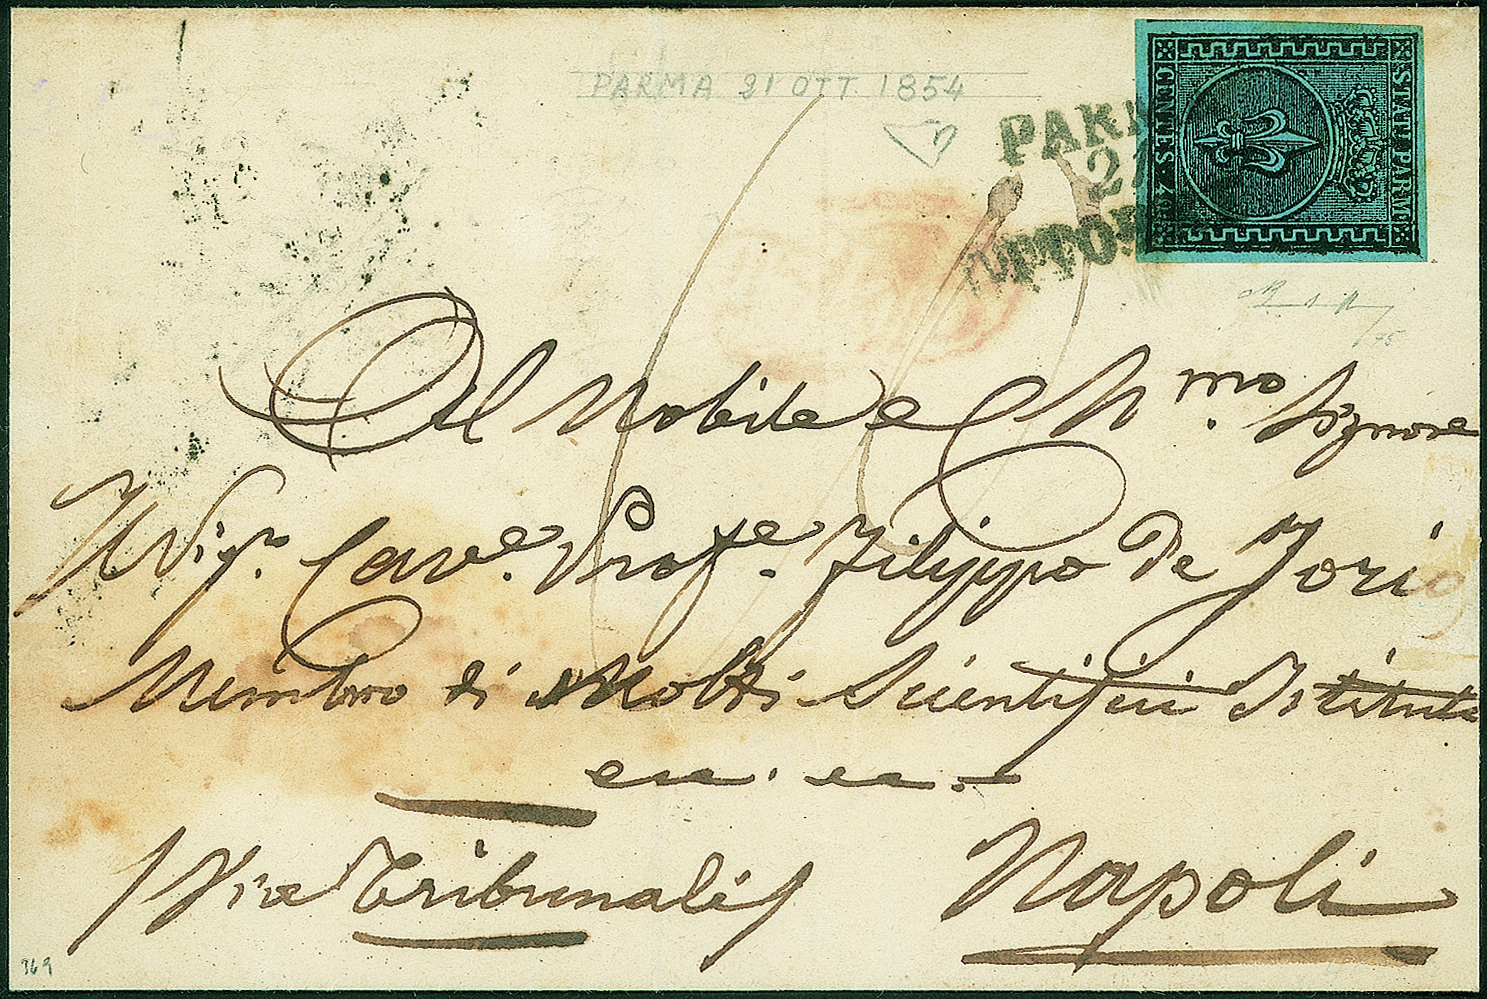 PARMA 21 OTT 1854
PAR
21
OTTOB
STATI PARM.
CENTES. 40
Al Nobile e Ch.mo Signore
Il Sigr. Cav.e Prof.re Filippo de Jorio
Membro di Molti Scientifici Istituti
ec. ec.
/Via Tribunali/ Napoli
369